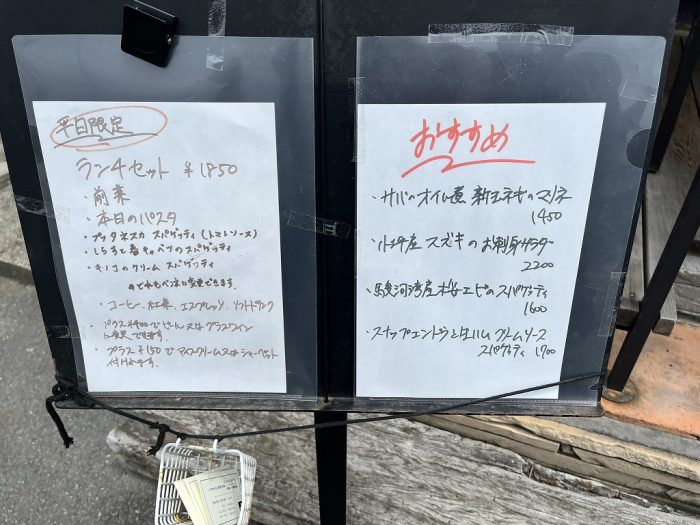 平日限定
ランチセット ¥1850
・前菜
・本日のパスタ
・プッタネスカ スパゲッティ(トマトソース)
・しらすと春キャベツのスパゲッティ
・キノコのクリーム スパゲッティ
のどれもペンネに変更できます。
・コーヒー、紅茶、エスプレッソ、ソフトドリンク
・プラス¥400で ビール 又は グラスワイン
に変更できます。
・プラス¥150で アイスクリーム又は シャーベット
付けれます。
おすすめ
・サバのオイル煮 新玉ネギのマリネ
1450
・小坪産 スズキの お刺身サラダ
2200
・駿河湾産 桜エビの スパゲッティ
1600
・スナップエンドウと生ハム クリームソース
スパゲッティ 1700